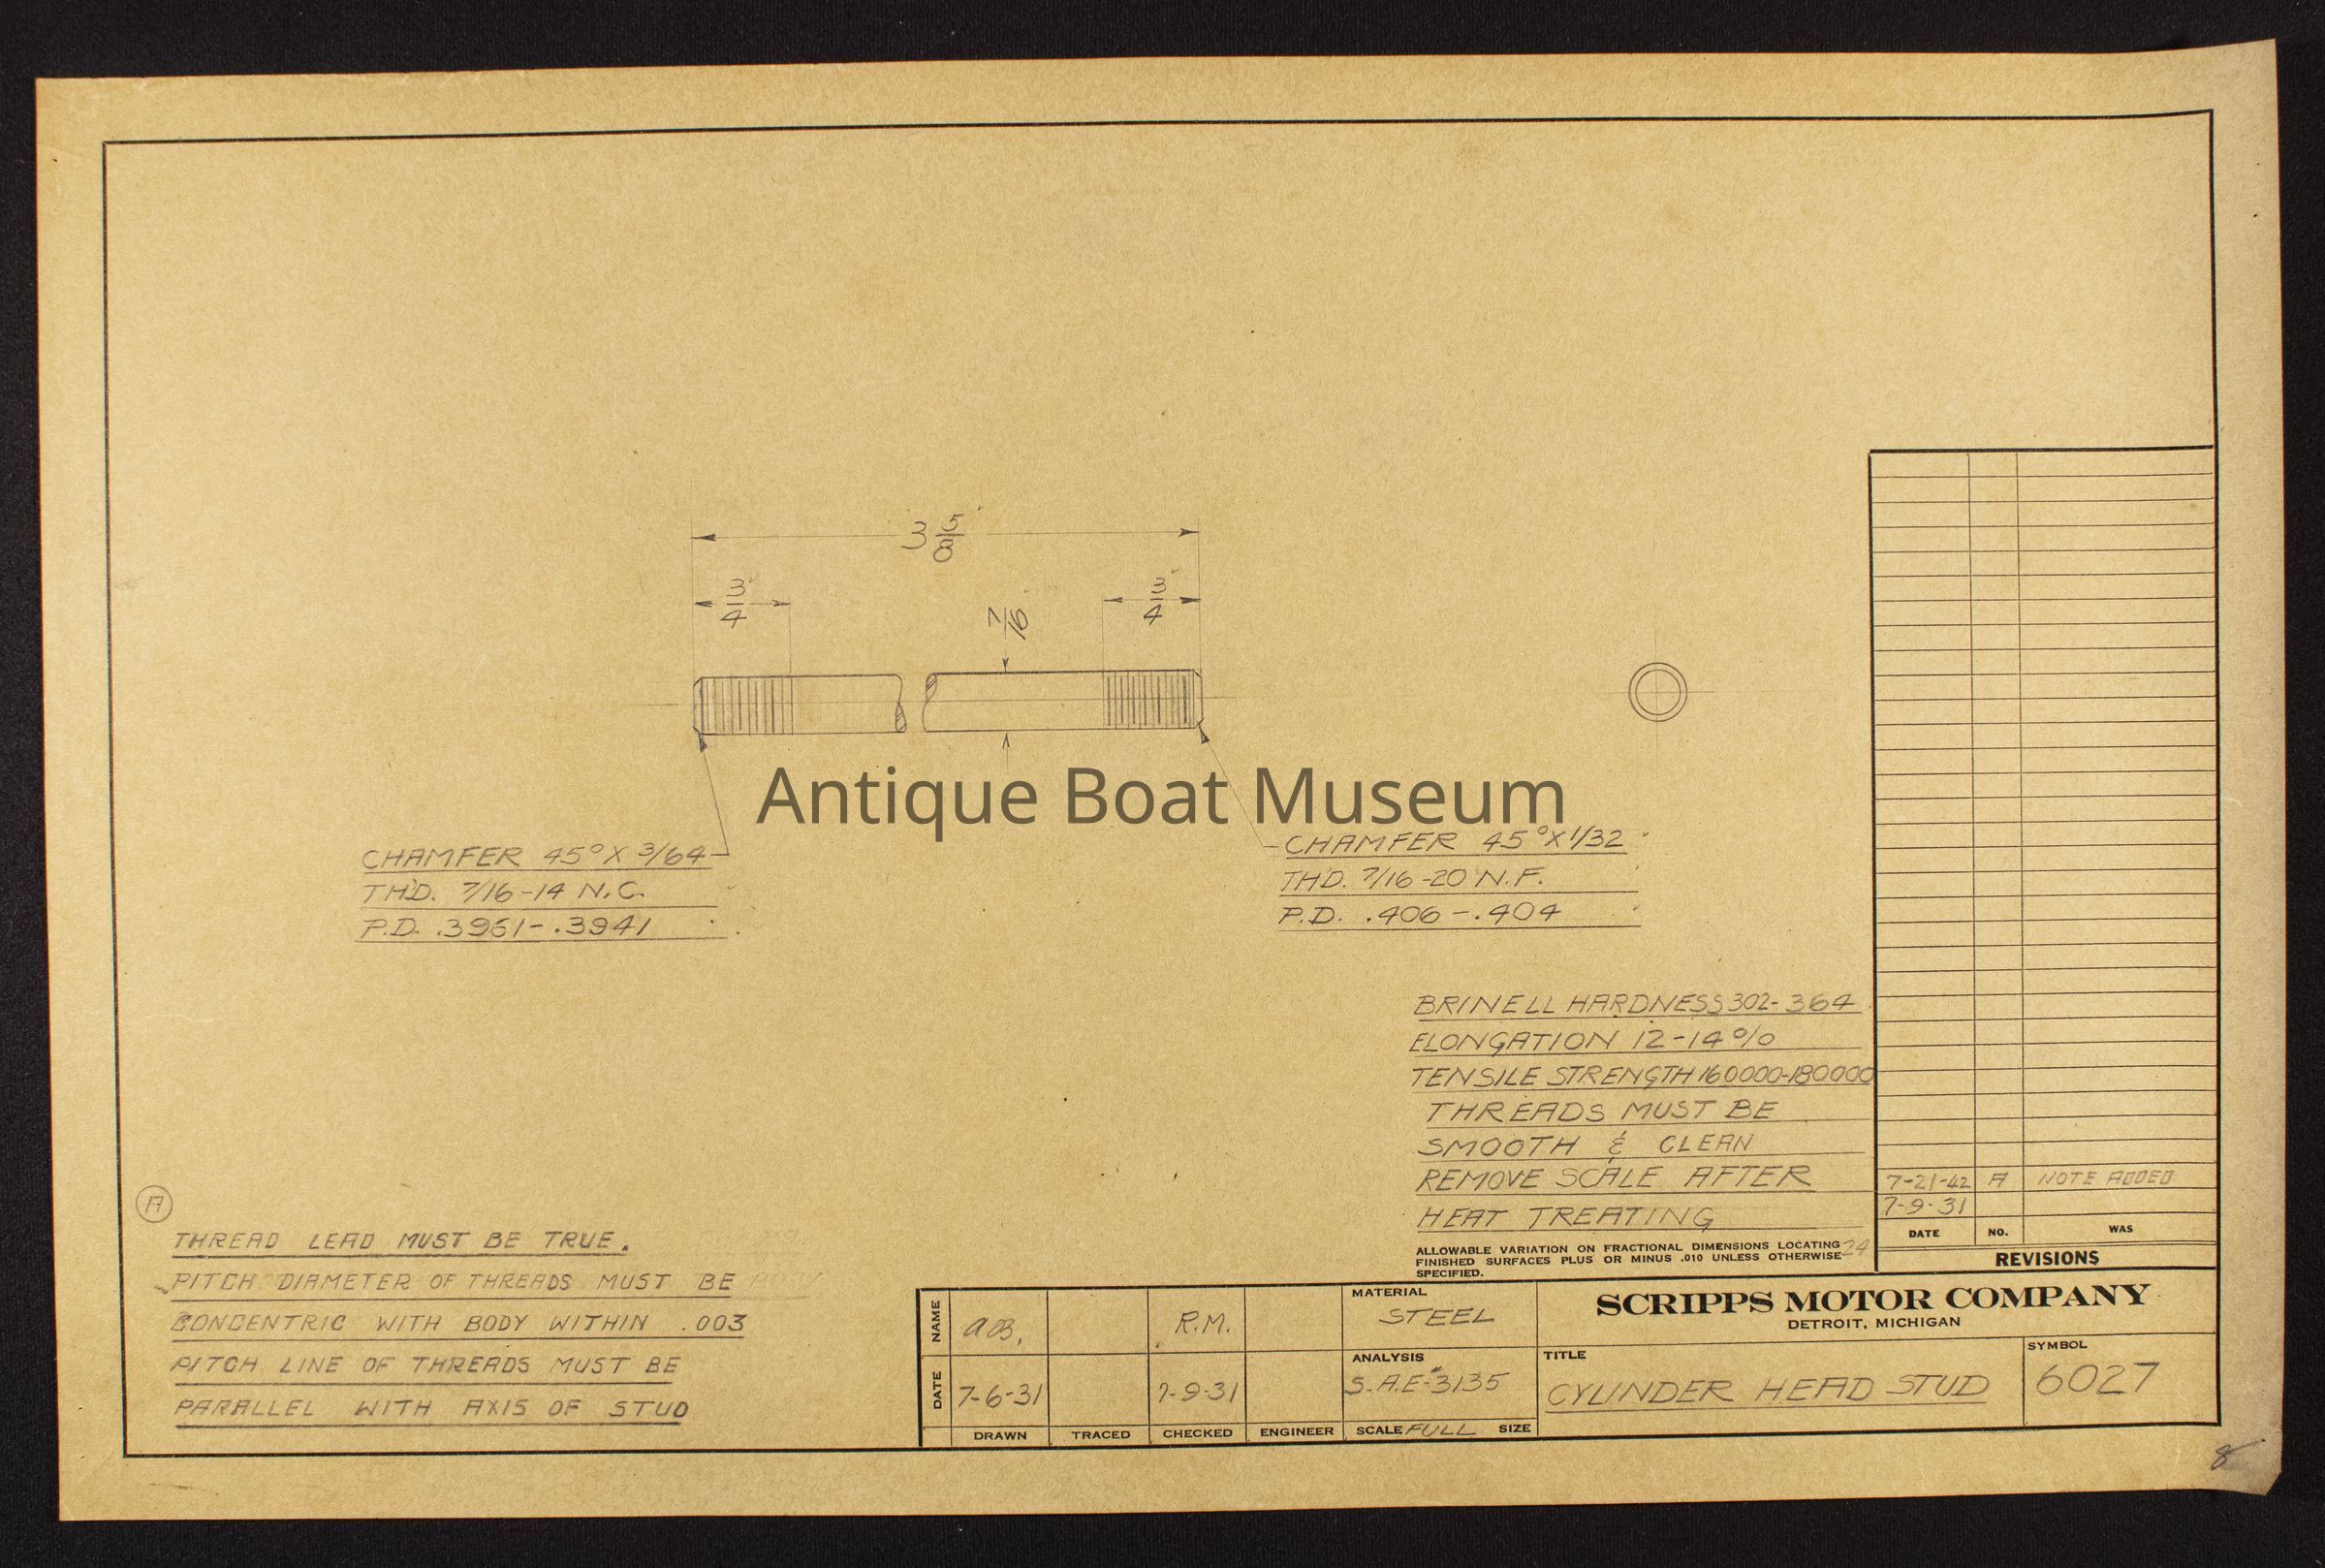 3 5/8
3/4
7/16
3/4
Antique Boat Museum
CHAMFER 45° X 3/64
TH'D. 7/16-14 N.C.
P.D. .3961-.3941
CHAMFER 45° X 1/32
THD. 7/16-20 N.F.
P.D. .406-.404
BRINELL HARDNESS 302-364
ELONGATION 12-14%
TENSILE STRENGTH 160000-180000
THREADS MUST BE
SMOOTH & CLEAN
REMOVE SCALE AFTER
HEAT TREATING
ALLOWABLE VARIATION ON FRACTIONAL DIMENSIONS LOCATING
FINISHED SURFACES PLUS OR MINUS .010 UNLESS OTHERWISE
SPECIFIED.
24
A
THREAD LEAD MUST BE TRUE.
PITCH DIAMETER OF THREADS MUST BE
CONCENTRIC WITH BODY WITHIN .003
PITCH LINE OF THREADS MUST BE
PARALLEL WITH AXIS OF STUD
7-21-42 A NOTE ADDED
7-9-31
DATE NO. WAS
REVISIONS
NAME R.M.
DATE 7-6-31 7-9-31
DRAWN TRACED CHECKED ENGINEER
MATERIAL
STEEL
ANALYSIS
S.A.E-3135
SCALE FULL SIZE
SCRIPPS MOTOR COMPANY
DETROIT, MICHIGAN
TITLE
CYLINDER HEAD STUD
SYMBOL
6027
8